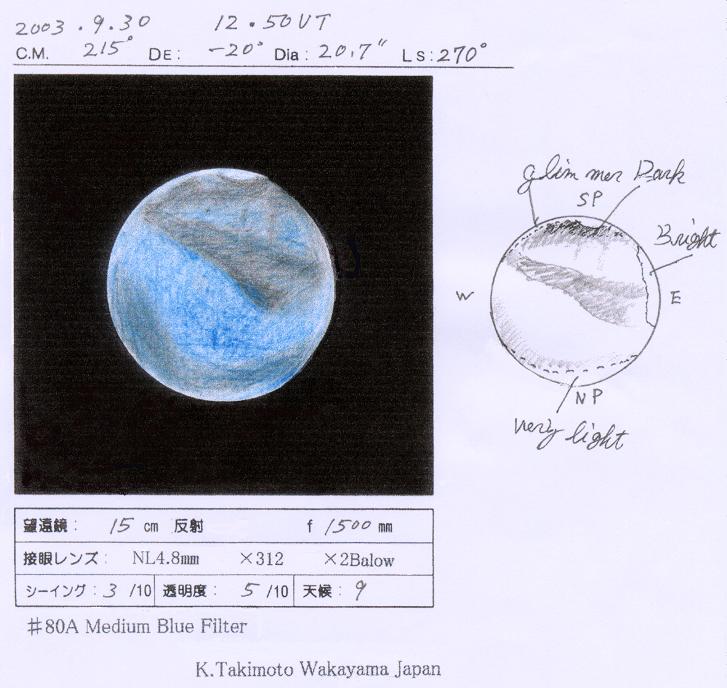 2003.9.30 12.50UT
C.M. 215° DE: -20° Dia: 20.7" LS: 270°
glimmer Dark
SP
Bright
W E
NP
very light
望遠鏡: 15 cm 反射 f 1500 mm
接眼レンズ: NL4.8mm ×312 ×2Balow
シーイング: 3 /10 透明度: 5 /10 天候: 9
#80A Medium Blue Filter
K.Takimoto Wakayama Japan